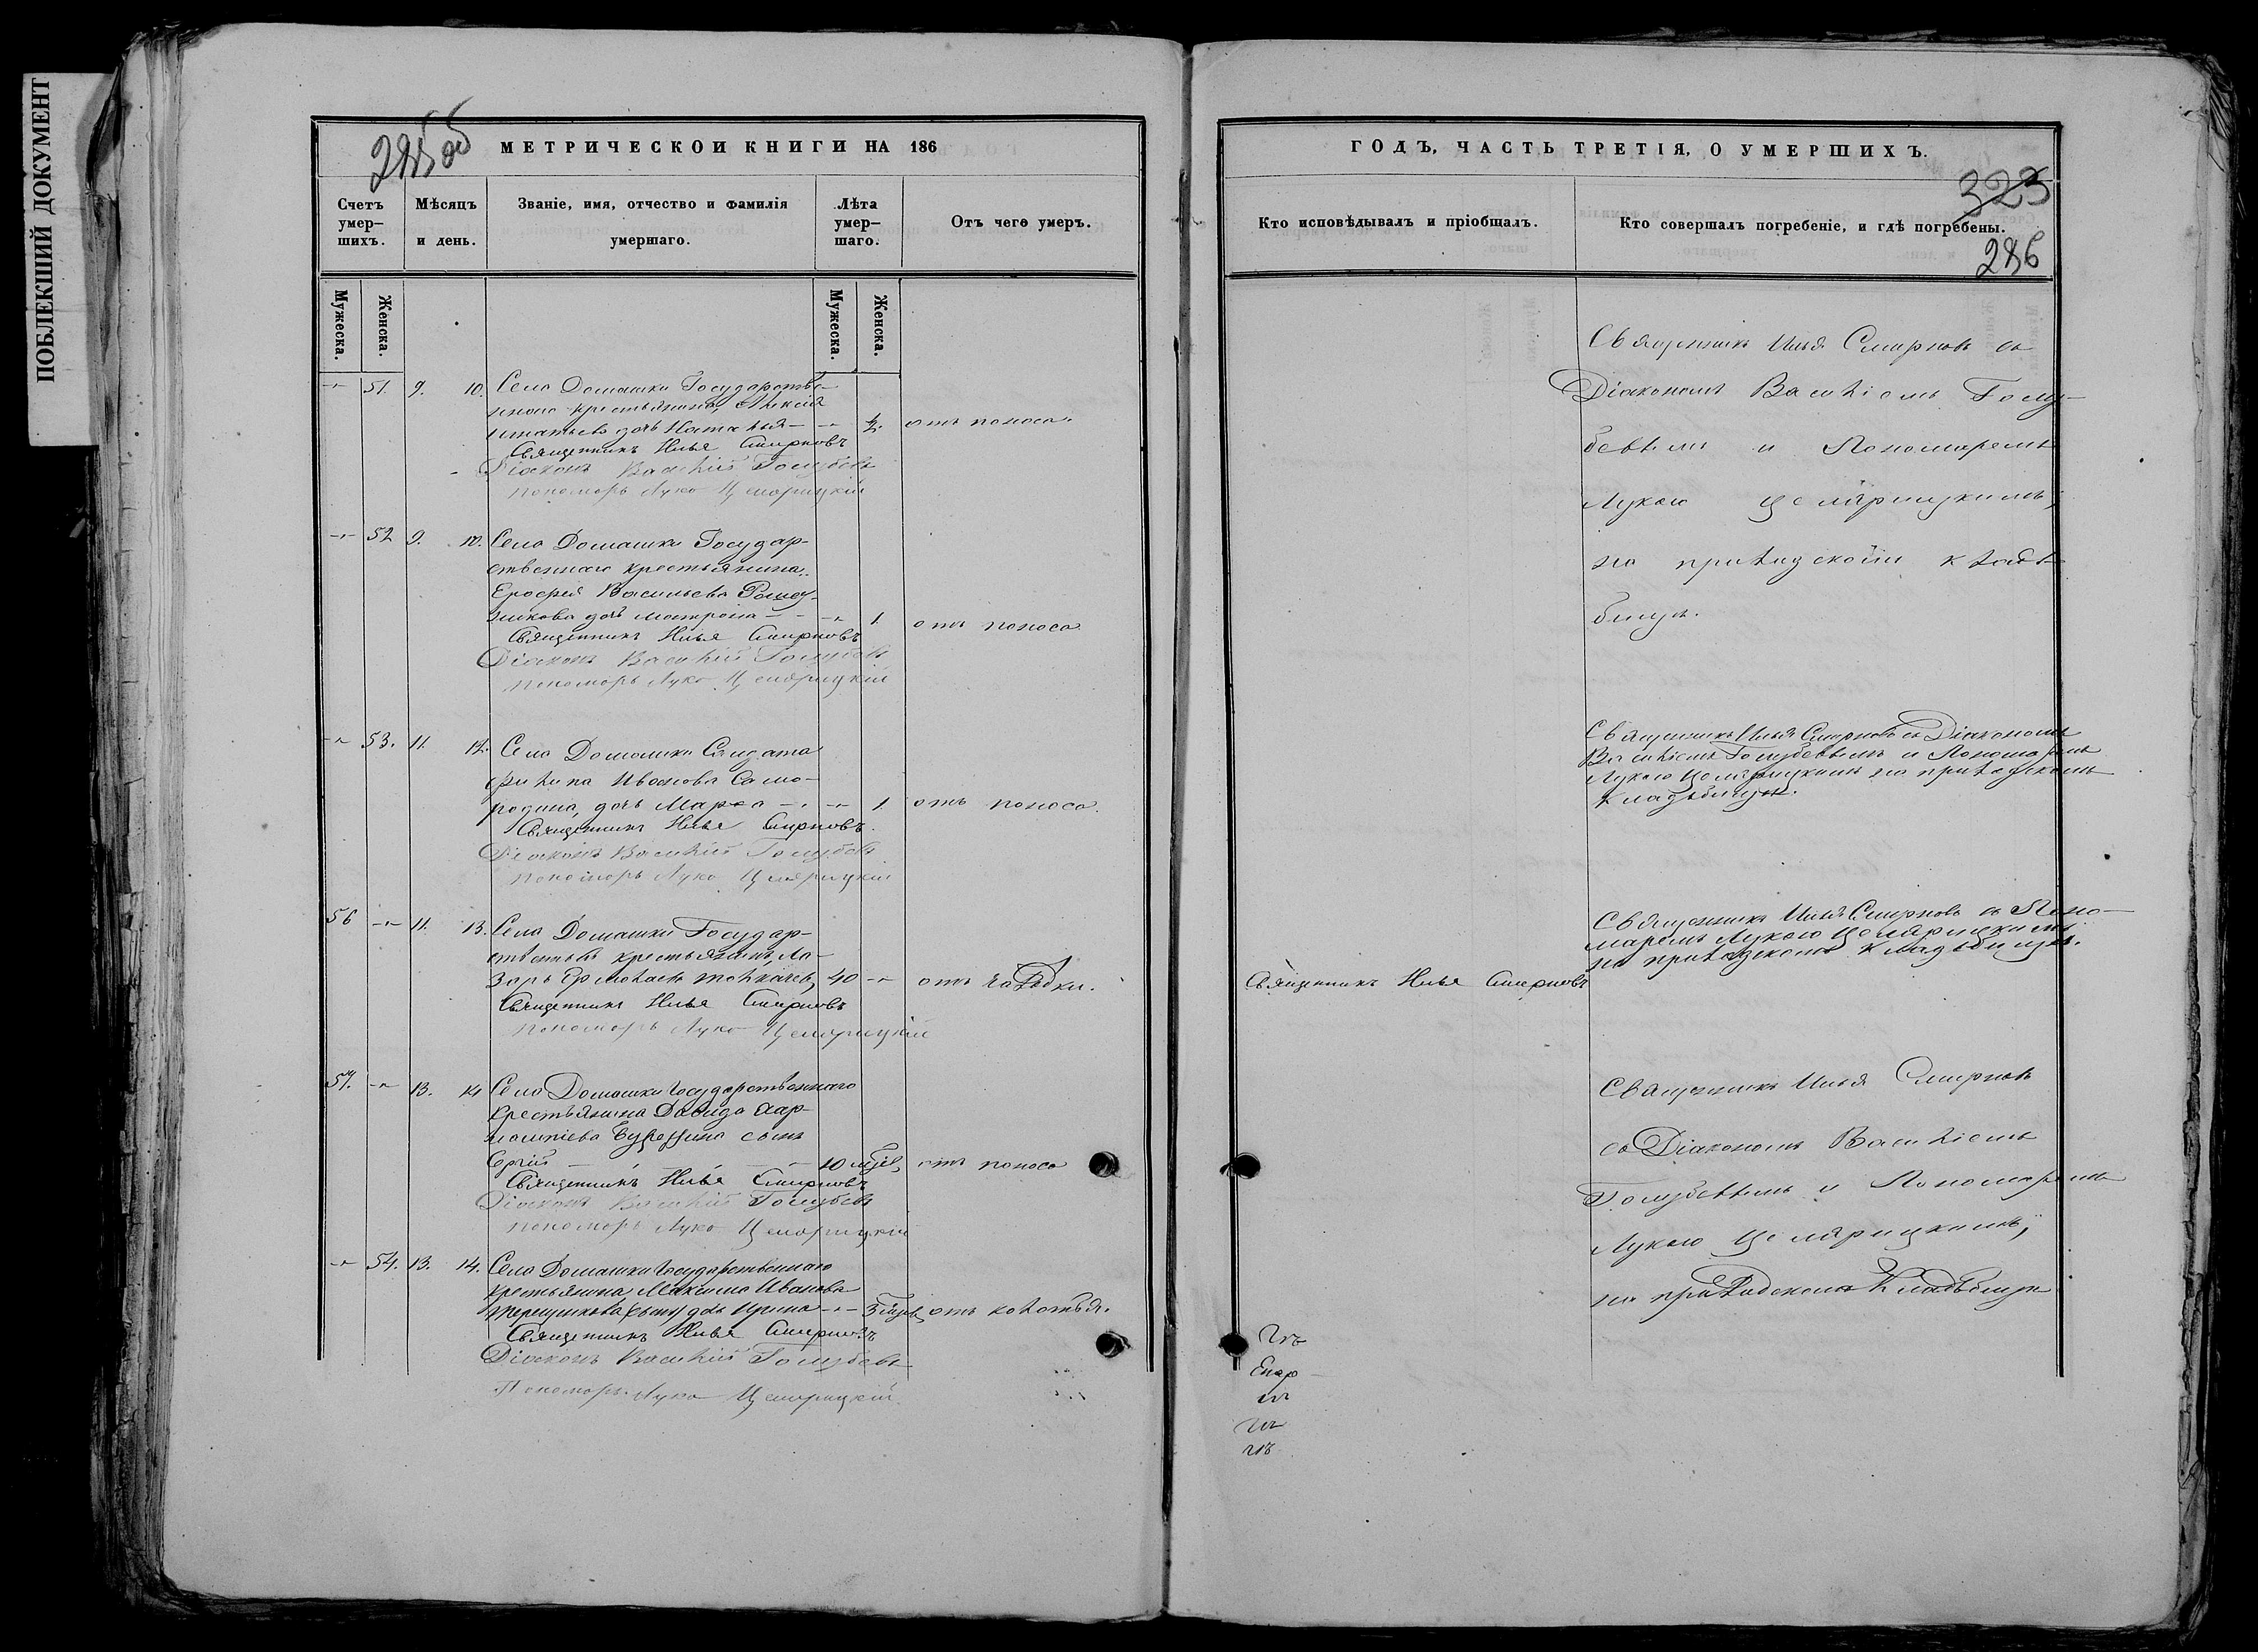 ПОБЛЕКШИЙ ДОКУМЕНТ
285об
МЕТРИЧЕСКОЙ КНИГИ НА 186
Счетъ умер-шихъ.
Мѣсяцъ и день.
Званіе, имя, отчество и фамилія умершаго.
Лѣта умер-шаго.
Отъ чего умеръ.
Мужеска.
Женска.
Мужеска.
Женска.
51. 9. 10. Села Домашки Государстве-
ннаго крестьянина, Алексія
дочь Наталья ½ отъ поноса.
Священникъ Илья Смирновъ
Діаконъ Василій Голубевъ
пономарь Лука Цемярицкій
52 9. 10. Села Домашки Государ-
ственнаго крестьянина
Ерофея Васильева
дочь Матрона 1 отъ поноса
Священникъ Илья Смирновъ
Діаконъ Василій Голубевъ
пономарь Лука Цемярицкій
53. 11. 12. Села Домашки Салдата
Филипа Иванова Само-
родина, дочь Марѳа 1 отъ поноса.
Священникъ Илья Смирновъ.
Діаконъ Василій Голубевъ
пономарь Лука Цемярицкій
56 11. 13. Села Домашки Государ-
крестьянинъ, Ла-
зарь 40 отъ
Священникъ Илья Смирновъ
пономарь Лука Цемярицкій
57. 13. 14 Села Домашки Государственнаго
крестьянина Давида Хар-
сынъ
10 отъ поноса
Священникъ Илья Смирновъ
Діаконъ Василій Голубевъ
пономарь Лука Цемярицкій
54. 13. 14. Села Домашки Государственнаго
крестьянина, Максима Иванова
дочь Ирина 3 отъ
Священникъ Илья Смирновъ
Діаконъ Василій Голубевъ
Пономарь Лука Цемярицкій
ГОДЪ, ЧАСТЬ ТРЕТІЯ, О УМЕРШИХЪ.
323
286
Кто исповѣдывалъ и пріобщалъ.
Кто совершалъ погребеніе, и гдѣ погребены.
Священникъ Илья Смирновъ съ
Діакономъ Василіемъ Голу-
бевымъ и Пономаремъ
Лукою Цемярицкимъ,
на приходскомъ кладъ-
бищѣ.
Священникъ Илья Смирновъ съ Діакономъ
Василіемъ Голубевымъ и Пономаремъ
Лукою Цемярицкимъ на приходскомъ
кладьбищѣ.
Священникъ Илья Смирновъ съ Поно-
маремъ Лукою Цемярицкимъ
на приходскомъ кладъбищѣ.
Священникъ Илья Смирновъ
Священникъ Илья Смирновъ
съ Діакономъ Василіемъ
Голубевымъ и Пономаремъ
Лукою Цемярицкимъ,
на приходскомъ кладъбищѣ